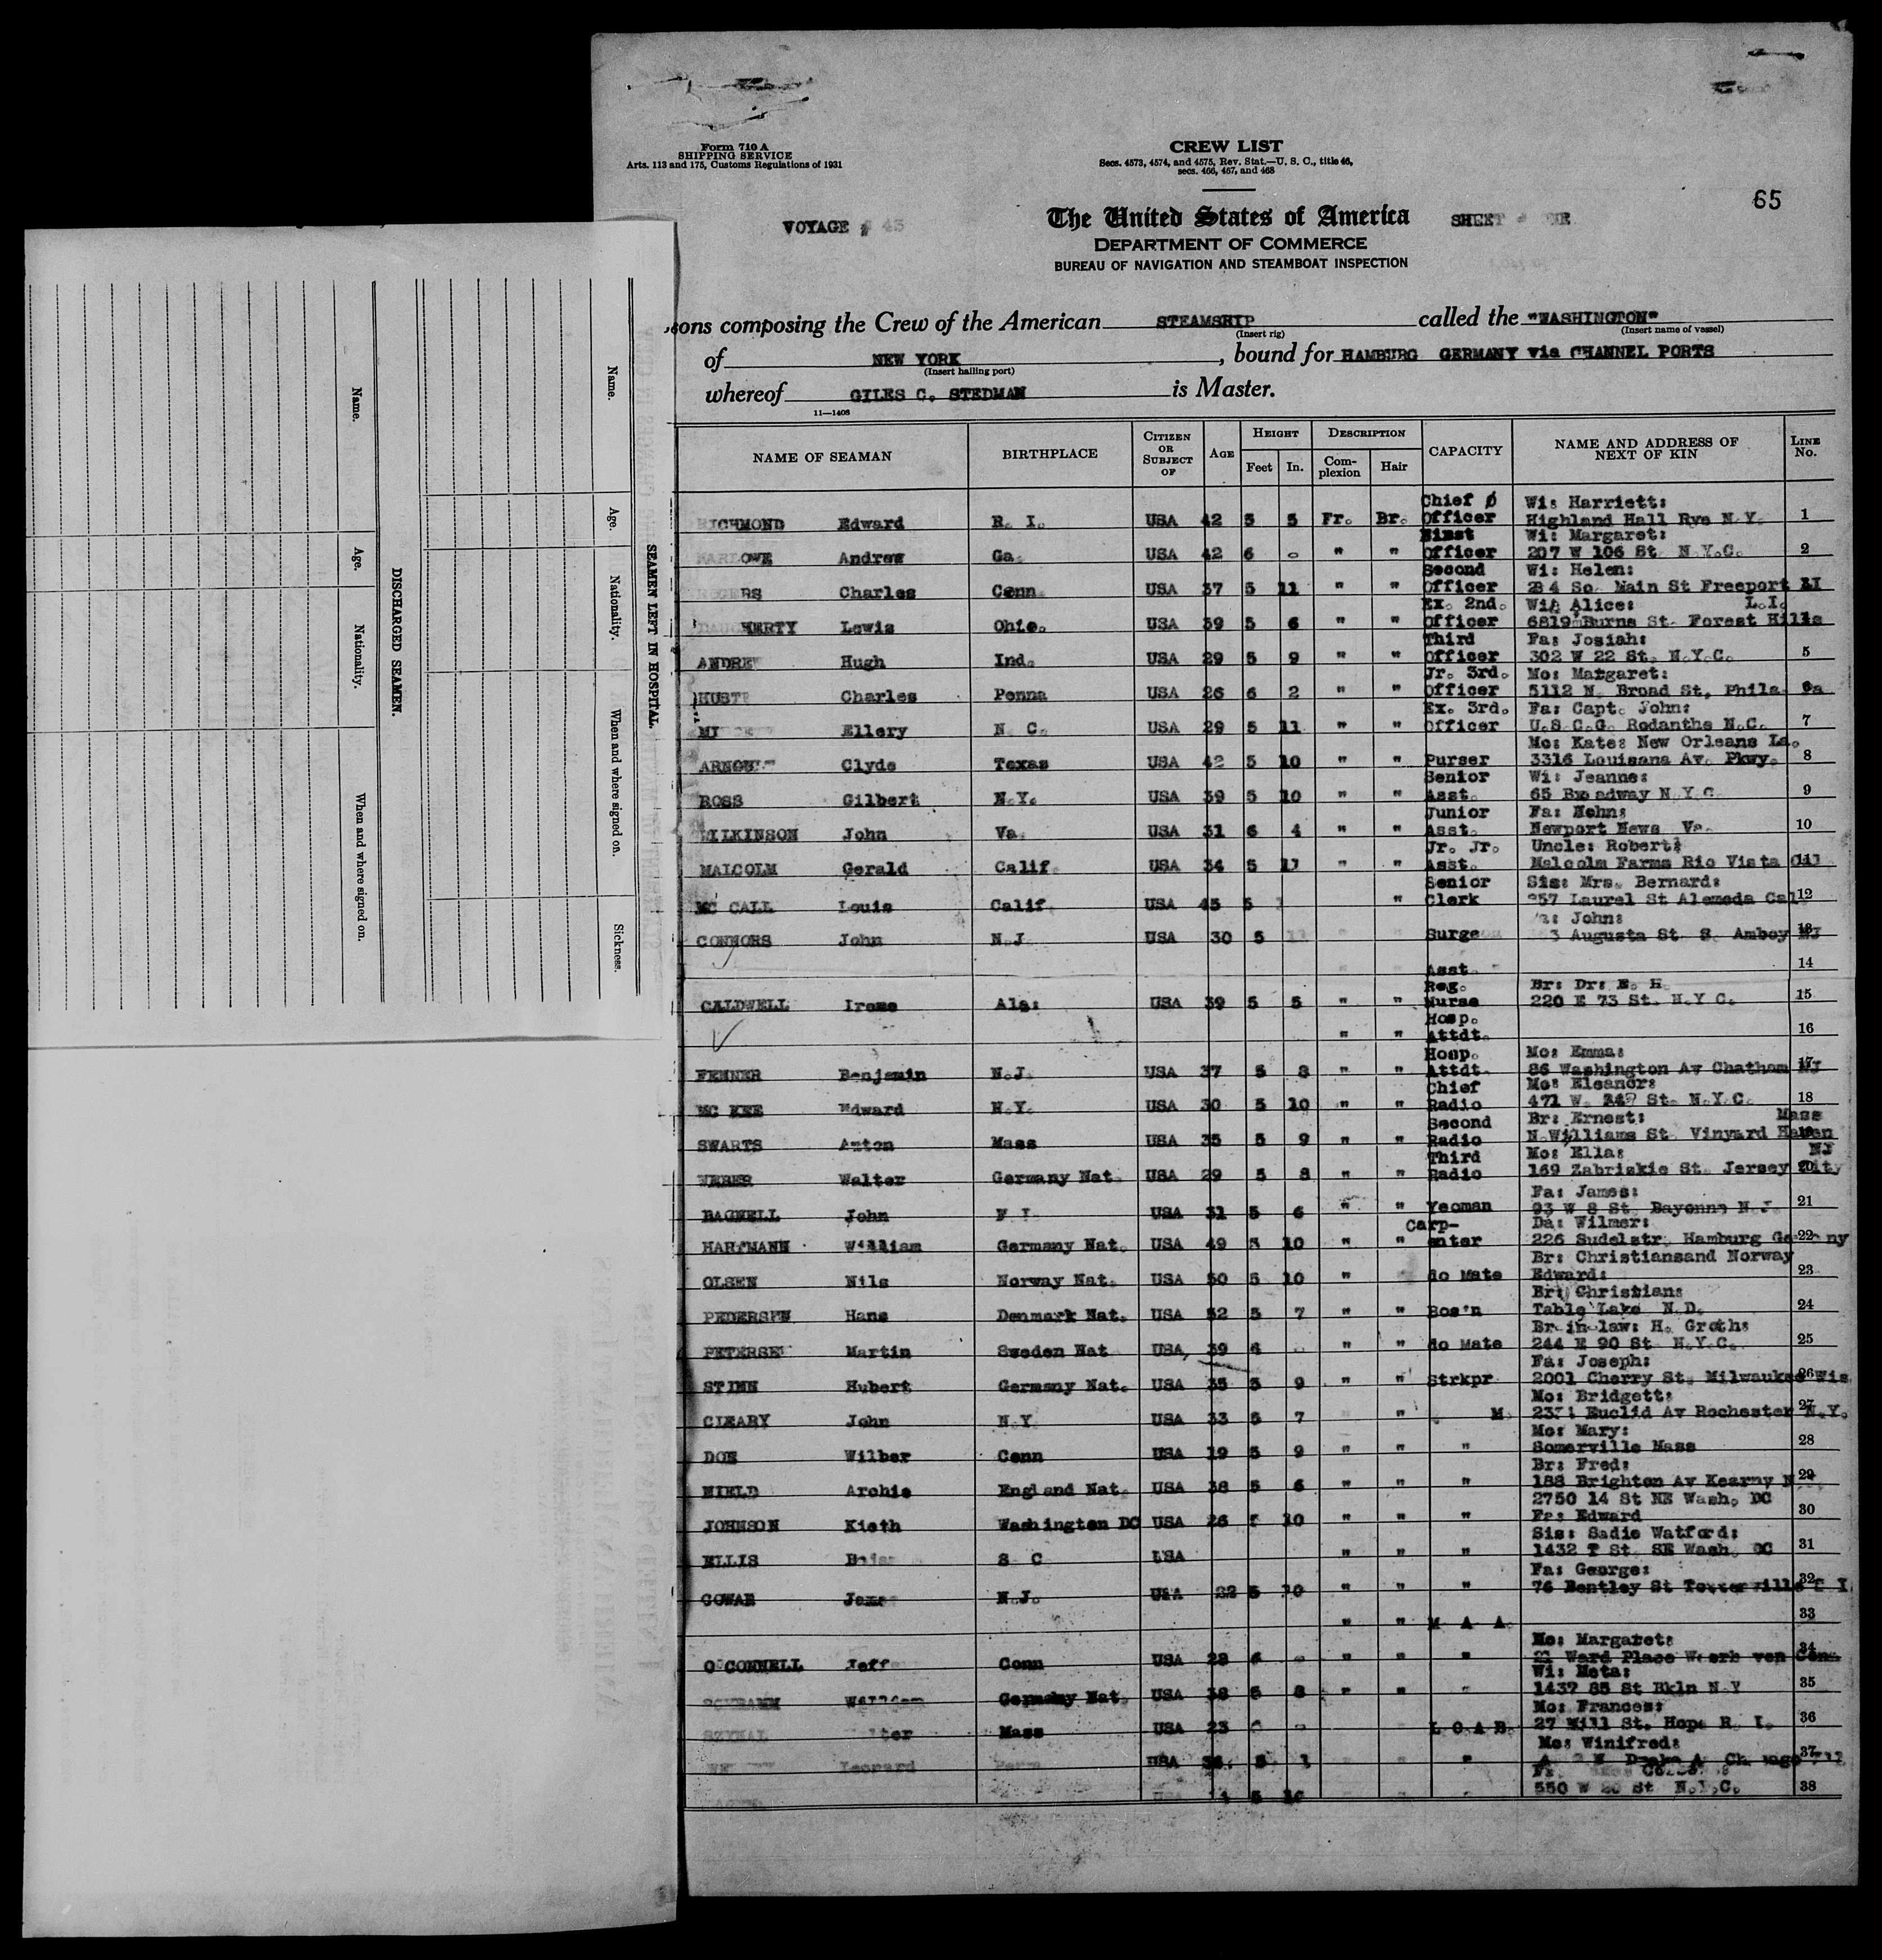 Form 710 A
SHIPPING SERVICE
Arts. 113 and 175, Customs Regulations of 1931
CREW LIST
Secs. 4573, 4574, and 4575, Rev. Stat.—U. S. C., title 46,
secs. 466, 467, and 468
65
VOYAGE # 43
The United States of America
SHEET
DEPARTMENT OF COMMERCE
BUREAU OF NAVIGATION AND STEAMBOAT INSPECTION
sons composing the Crew of the American STEAMSHIP called the "WASHINGTON"
(Insert rig) (Insert name of vessel)
of NEW YORK, bound for HAMBURG GERMANY via CHANNEL PORTS
(Insert hailing port)
whereof GILES C. STEDMAN is Master.
11—1408
NAME OF SEAMAN BIRTHPLACE CITIZEN OR SUBJECT OF AGE HEIGHT Feet In. DESCRIPTION Complexion Hair CAPACITY NAME AND ADDRESS OF NEXT OF KIN LINE No.
Chief Wi: Harriett:
RICHMOND Edward R. I. USA 42 5 5 Fr. Br. Officer Highland Hall Rye N.Y. 1
Wi: Margaret:
Andrew Ga. USA 42 6 " " Officer 207 W 106 St N.Y.C. 2
Second Wi: Helen:
Charles Conn USA 37 5 11 " " Officer So. Main St Freeport 
Ex. 2nd. Alice: L.I.
Lewis Ohio. USA 39 5 6 " " Officer 6819 Burns St. Forest Hills
Third Fa: Josiah:
Hugh Ind. USA 29 5 9 " " Officer 302 W 22 St. N.Y.C. 5
Jr. 3rd. Mo: Margaret:
Charles Penna USA 26 6 2 " " Officer 5112 N. Broad St, Phila. Pa
Ex. 3rd. Fa: Capt. John:
Ellery N C. USA 29 5 11 " " Officer U.S.C.G. Rodanthe N.C. 7
Mo: Kate: New Orleans La.
Clyde Texas USA 42 5 10 " " Purser 3316 Louisana Av. Pkwy. 8
Senior Wi: Jeanne:
ROSS Gilbert N.Y. USA 39 5 10 " " Asst. 65 Broadway N.Y.C. 9
Junior Fa:
WILKINSON John Va. USA 31 6 4 " " Asst. Newport News Va. 10
Jr. Jr. Uncle: Robert:
MALCOLM Gerald Calif USA 34 5 11 " " Asst. Malcolm Farms Rio Vista
Senior Sis: Mrs. Bernard:
MC CALL Louis Calif USA 45 5 " Clerk Laurel St Alameda Cal 12
John:
CONNORS John N.J USA 30 5 Augusta St. S. Amboy NJ
Asst 14
Reg. Br: Dr: E. H.
CALDWELL Irene Ala: USA 39 5 5 " " Nurse 220 E 73 St. N.Y.C. 15
Hosp.
" " Attdt. 16
Hosp. Mo: Emma:
FENNER Benjamin N.J. USA 37 5 8 " " Attdt. 86 Washington Av Chatham NJ 17
Chief Mo: Eleanor:
MC KEE Edward N.Y. USA 30 5 10 " " Radio 471 W. St. N.Y.C. 18
Second Br: Ernest: Mass
SWARTS Anton Mass USA 35 5 9 " " Radio N.Williams St. Vinyard Haven
Third Mo: Ella: NJ
WEBER Walter Germany Nat. USA 29 5 8 " " Radio 169 Zabriskie St. Jersey City 20
Fa: James:
BAGNELL John USA 31 5 6 " " Yeoman 93 W 8 St. Bayonne N.J. 21
Carp- Da: Wilmer:
HARTMANN William Germany Nat. USA 49 5 10 " " enter 226 Sudelstr. Hamburg 22
Br: Christiansand Norway
OLSEN Nils Norway Nat. USA 50 5 10 " do Mate Edward: 23
Br: Christian:
PEDERSEN Hans Denmark Nat. USA 52 5 7 " " Bos'n Table Lake N.D. 24
Br in law: H. Groth:
PETERSE Martin Sweden Nat USA, 39 6 " " do Mate 244 E 90 St N.Y.C. 25
Fa: Joseph:
STINN Hubert Germany Nat. USA 35 5 9 " " Strkpr 2001 Cherry St. Milwaukee Wis 26
Mo: Bridgett:
CLEARY John N.Y USA 33 5 7 " M Euclid Av Rochester N.Y. 27
Mo: Mary:
DOE Wilber Conn USA 19 5 9 " " " Somerville Mass 28
Br: Fred:
NIELD Archie England Nat. USA 38 5 6 " " " 188 Brighton Av Kearny N 29
2750 14 St NE Wash. DC
JOHNSON Kieth Washington DC USA 26 5 10 " " " Fa: Edward 30
Sis: Sadie Watford:
ELLIS S C USA " " " 1432 St. SE Wash. DC 31
Fa: George:
COWAN N.J. USA 22 5 10 " " " 76 Bentley St 32
" " M A A. 33
Mo: Margaret:
O'CONNELL Jeff Conn USA 28 6 " " " 21 Ward Place Conn 34
Wi: Meta:
Germany Nat. USA 38 5 8 " " " 1437 85 St Bkln N Y 35
Mo: Frances:
Mass USA 23 L O A B. 27 Mill St. Hope R. I. 36
Mo: Winifred:
Leonard USA 5 1 " " " 37
550 W St N.Y.C. 38
SEAMEN LEFT IN HOSPITAL
Name. Age. Nationality. When and where signed on. Sickness.
DISCHARGED SEAMEN.
Name. Age. Nationality. When and where signed on.